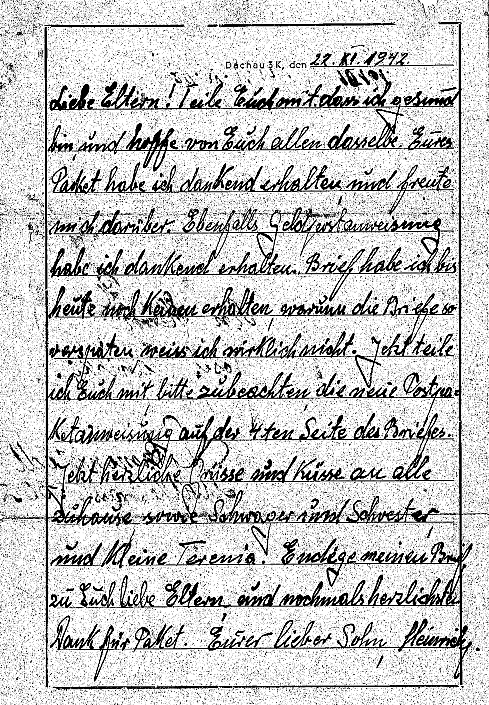 Dachau 3K, den 22. XI. 1942.
Liebe Eltern! Teile Euch mit dass ich gesund
bin und hoffe von Euch allen dasselbe. Eures
Packet habe ich dankend erhalten und freute
mich darüber. Ebenfalls Geldpostanweisung
habe ich dankend erhalten. Brief habe ich bis
heute noch keinen erhalten, warum die Briefe so
verspäten weiss ich wirklich nicht. Jetzt teile
ich Euch mit bitte zubeachten die neue Postpa-
ketanweisung auf der 4ten Seite des Briefes.
Jetzt herzliche Grüsse und Küsse an alle
zuhause sowie Schwager und Schwester
und kleine Terenia. Endege meinen Brief
zu Euch liebe Eltern und nochmals herzlichsten
Dank für Paket. Eurer lieber Sohn Heinrich.